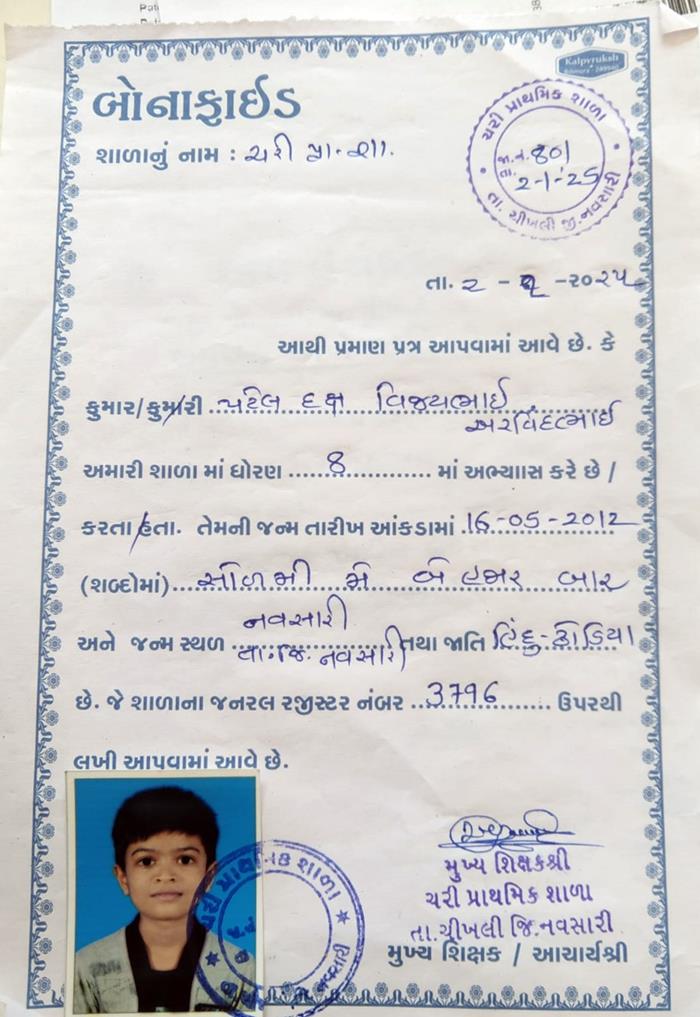 Kalpvruksh
બોનાફાઈડ
શાળાનું નામ : ચરી પ્રા. શા.
ચરી પ્રાથમિક શાળા
જા.નં. 801
તા. 2-1-25
તા. ચીખલી જી. નવસારી
તા. ૨ - ૧ -૨૦૨૫
આથી પ્રમાણ પત્ર આપવામાં આવે છે. કે
કુમાર/કુમારી પટેલ દક્ષ વિજયભાઈ
અરવિંદભાઈ
અમારી શાળા માં ધોરણ 8 માં અભ્યાસ કરે છે /
કરતા હતા. તેમની જન્મ તારીખ આંકડામાં 16-05-2012
(શબ્દોમાં) સોળમી મે બે હજાર બાર
નવસારી
અને જન્મ સ્થળ તા.જિ. નવસારી તથા જાતિ હિંદુ-ધોડિયા
છે. જે શાળાના જનરલ રજીસ્ટર નંબર 3796 ઉપરથી
લખી આપવામાં આવે છે.
પ્રાથમિક શાળા
નવસારી
મુખ્ય શિક્ષકશ્રી
ચરી પ્રાથમિક શાળા
તા. ચીખલી જિ. નવસારી
મુખ્ય શિક્ષક / આચાર્યશ્રી